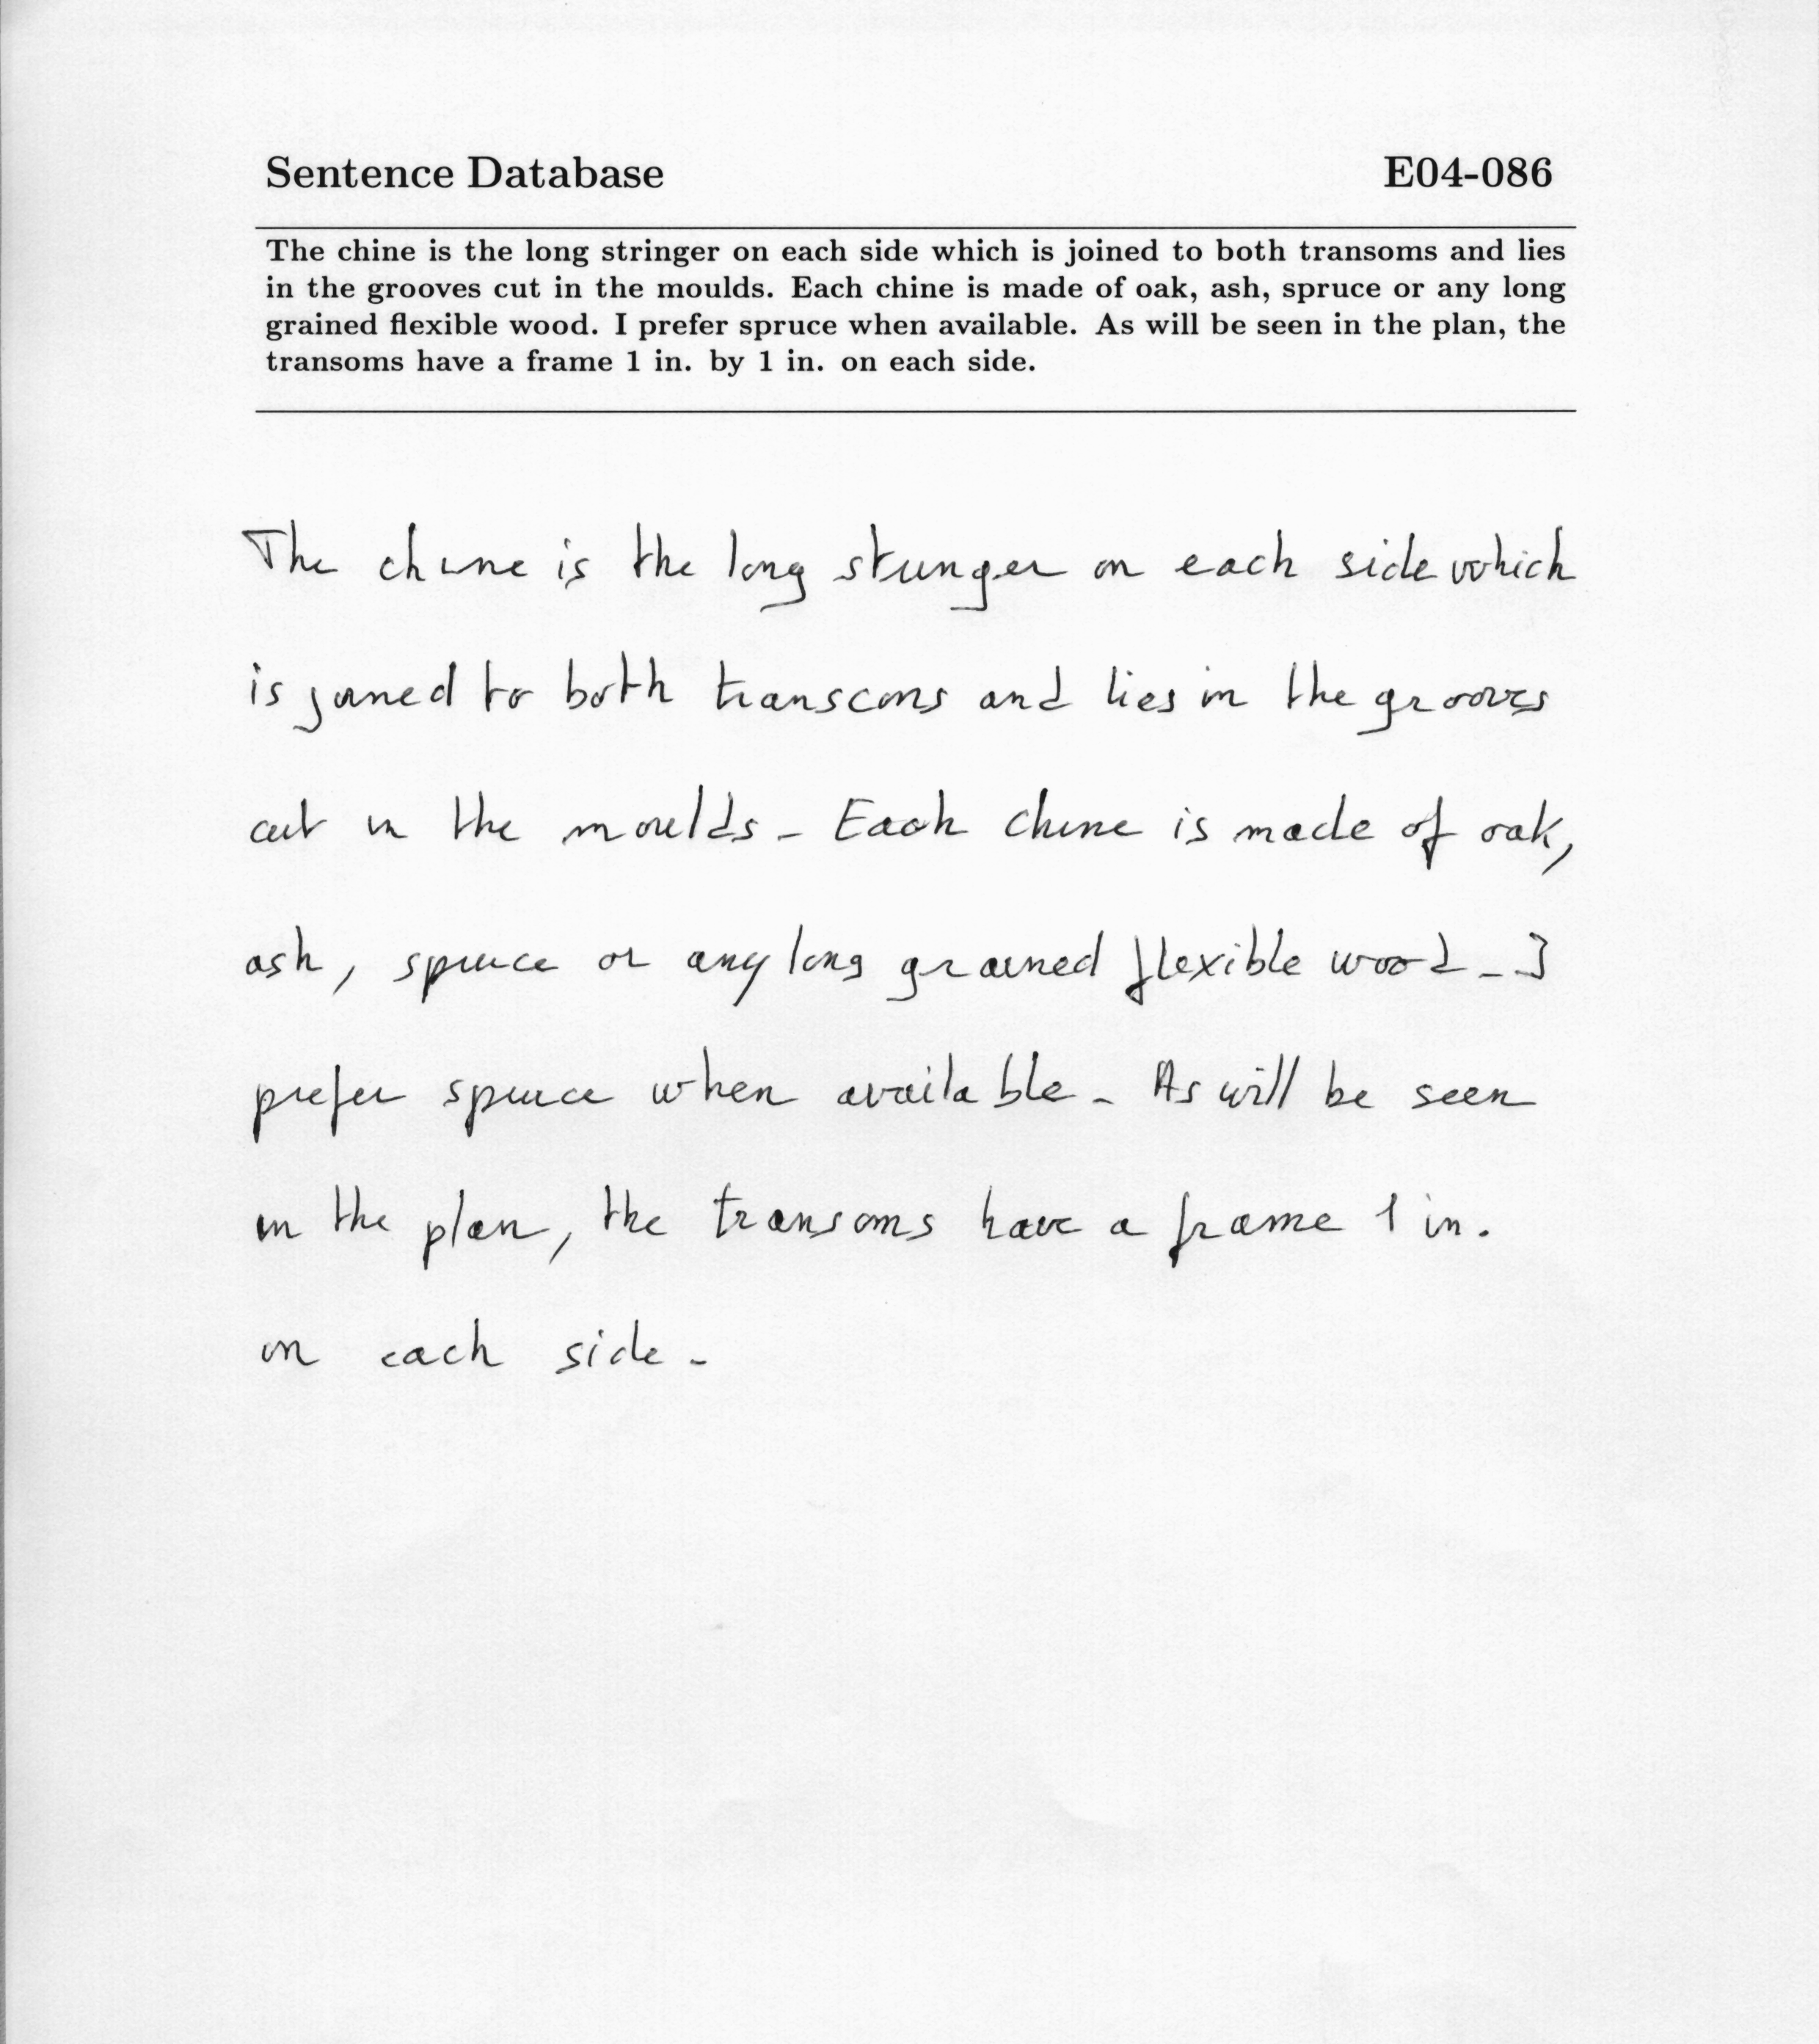 Sentence Database E04-086
The chine is the long stringer on each side which is joined to both transoms and lies
in the grooves cut in the moulds. Each chine is made of oak, ash, spruce or any long
grained flexible wood. I prefer spruce when available. As will be seen in the plan, the
transoms have a frame 1 in. by 1 in. on each side.
The chine is the long stringer on each side which
is joined to both transoms and lies in the grooves
cut in the moulds. Each chine is made of oak,
ash, spruce or any long grained flexible wood. I
prefer spruce when available. As will be seen
in the plan, the transoms have a frame 1 in.
on each side.